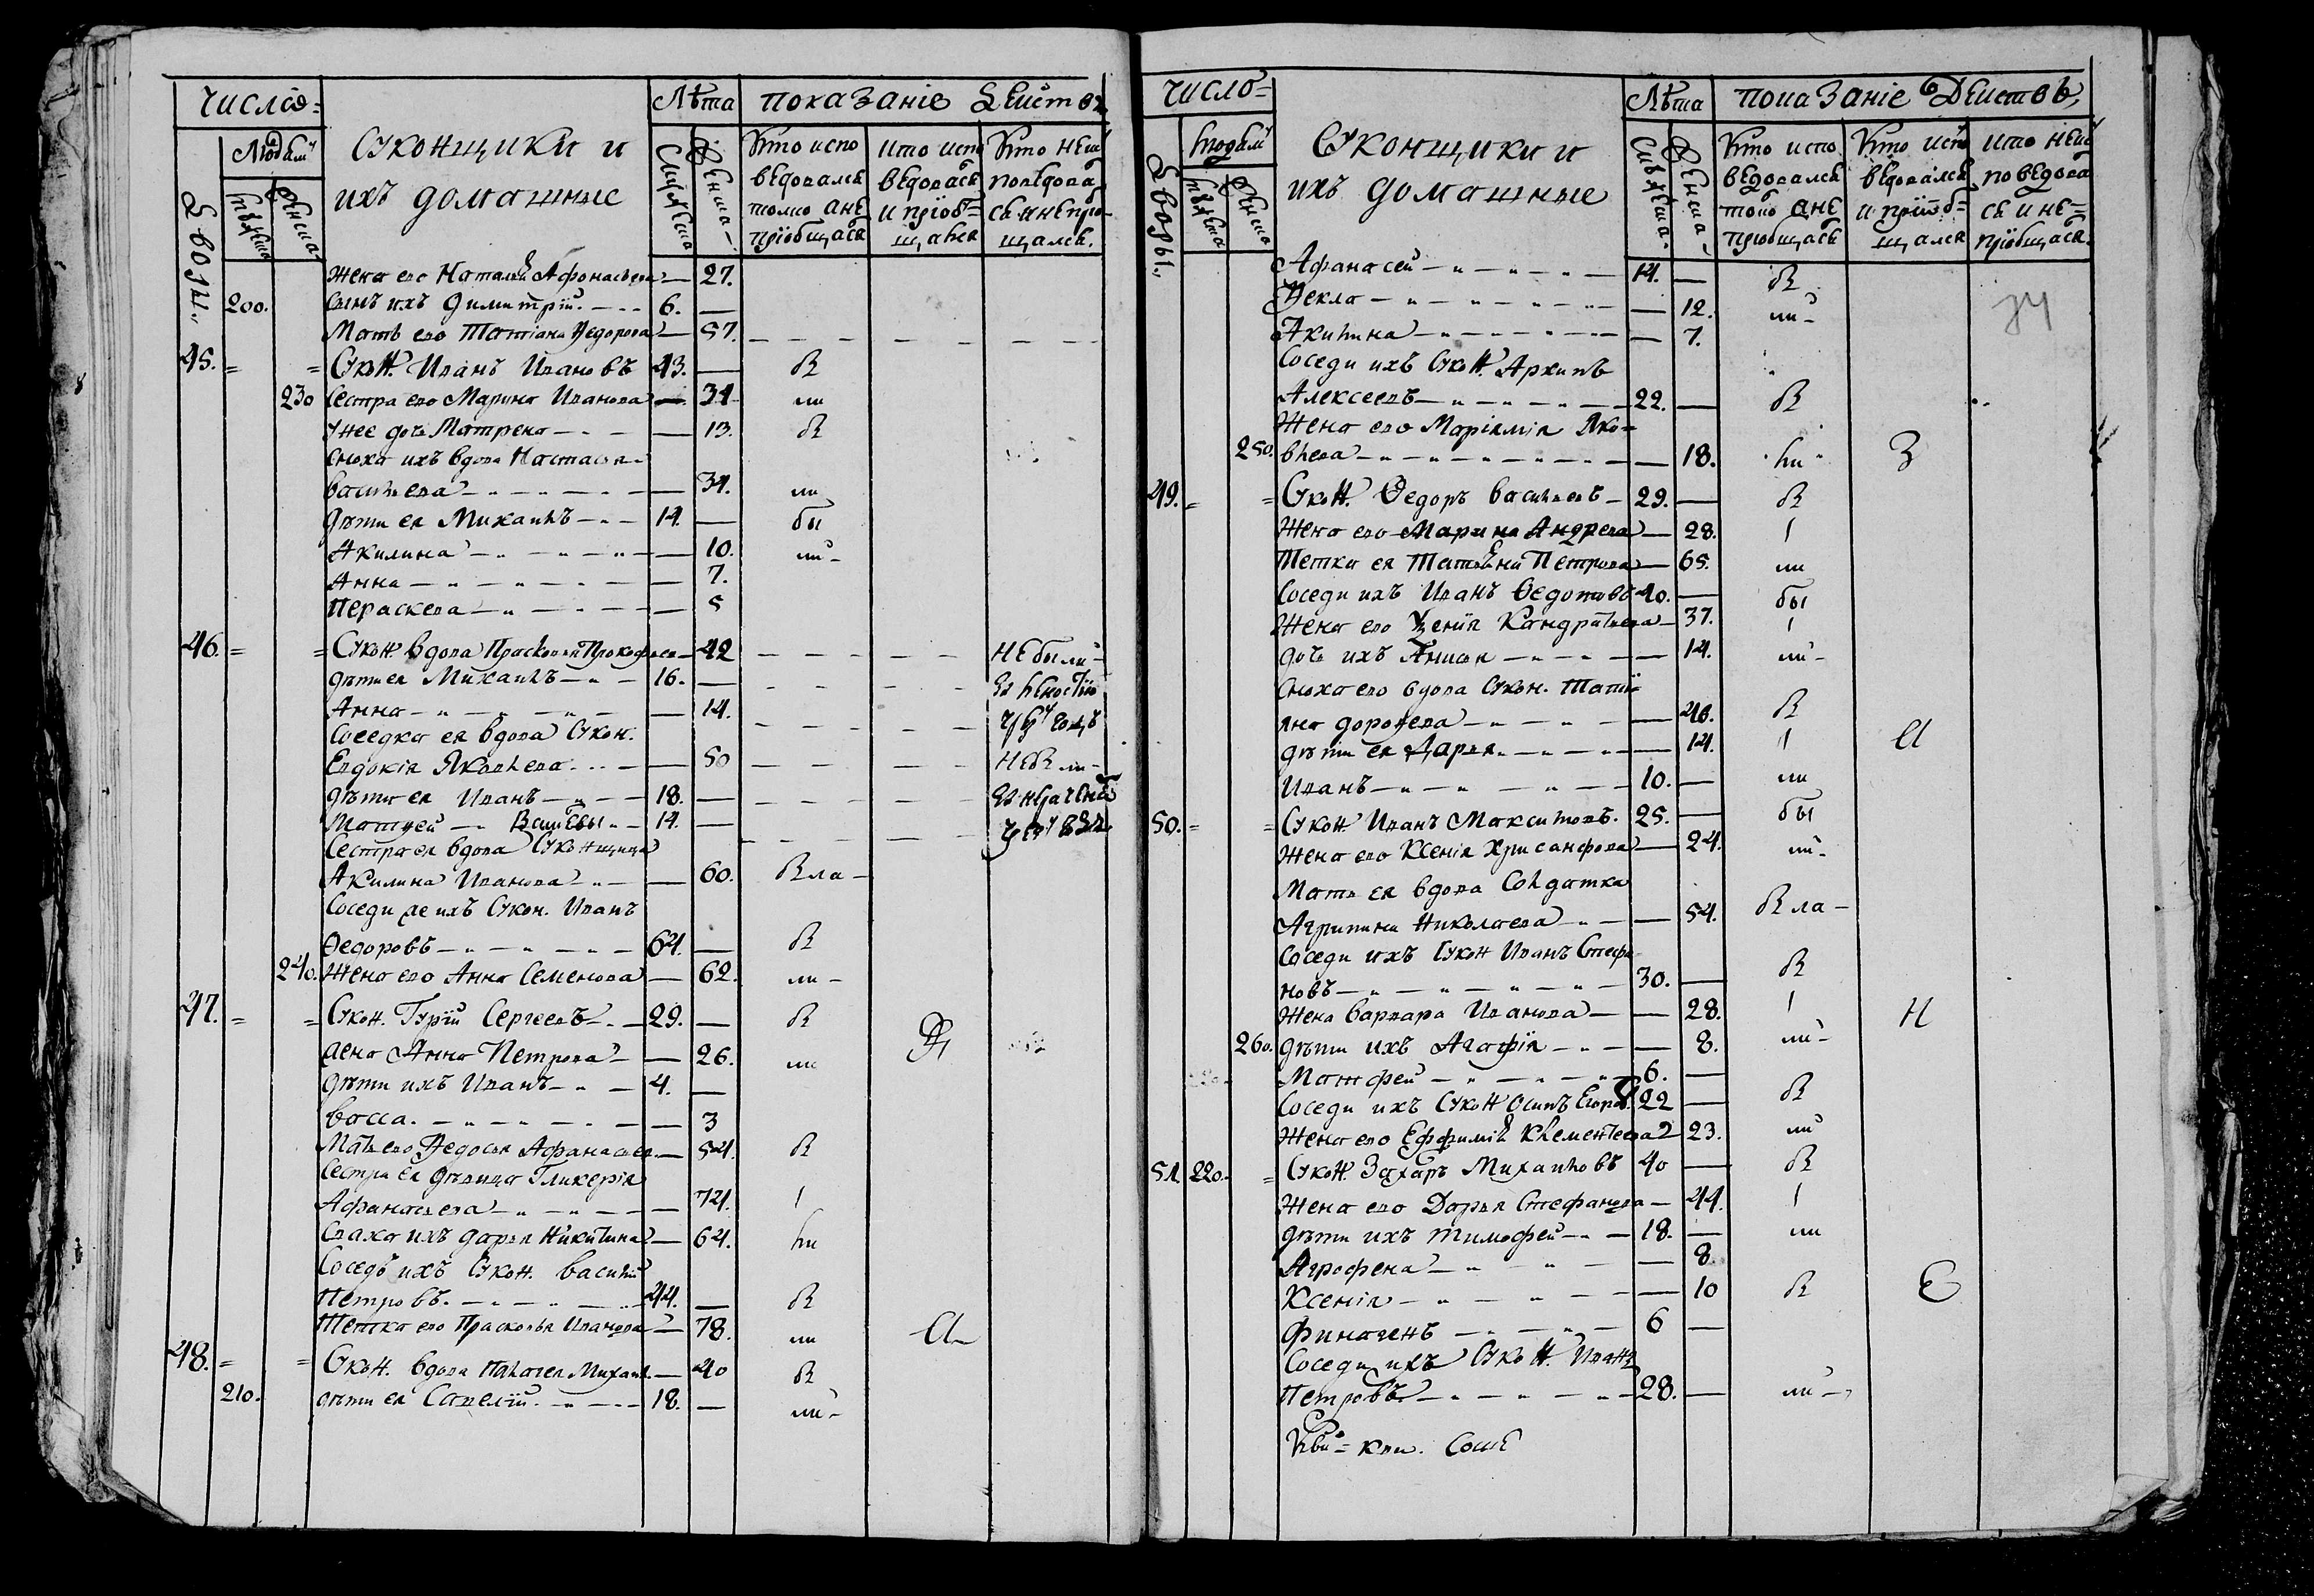 число=
Лѣта
показаніе Действъ
Дворы
Людемъ
мужеска
женска
Суконщики и
ихъ домашные
Мужеска
Женска
Кто испо
ведовалсь
толко ане
пріобщась
кто испо
ведовась
и пріоб=
щался
Кто неис
поведова
сь инепріо
щалсь.
жена ево Наталья Афонасьева — 27.
200. сынъ ихъ димитрій. - - - 6. —
Мать ево Татіана Федорова — 57.
45. = = Сукон. Иванъ Ивановъ 43. —
230 сестра ево Марина Иванова — 34
унее дочь Матрена — 13.
сноха ихъ вдова Настасья
васильева — 34.
дѣти ея Михаилъ — 14. —
Акилина — 10.
Анна — 7.
Пераскева — 5
46. = = Сукон. вдова Прасковья Прокофьева — 42 не были
дѣти ея Михаилъ — 16. —
Анна — 14.
соседка ея вдова Сукон.
Евдокія Яковлева — 50
дѣти ея Иванъ — 18. —
Матфей — 14. —
Сестра ея вдова Суконщица
Акилина Иванова — 60.
Соседи же ихъ Сукон. Иванъ
Ѳедоровъ — 64. —
240. жена ево Анна Семенова — 62.
47. = = Сукон. Гурій Сергеевъ — 29. —
жена Анна Петрова — 26.
дѣти ихъ Иванъ — 4. —
васса. — 3
Мать ево Федосья Афанасьев — 54.
Сестра ея дѣвица Гликерія
Афанасьева — 74.
сваха ихъ дарья Никитина — 64.
Соседъ ихъ Сукон. василій
Петровъ. — 44. —
Тетка ево Прасковья Иванова — 78.
48. = = Сукон. вдова Пелагея Михаил. — 40
210. дѣти ея Савелій. — 18. —
число=
Лѣта
показаніе Действъ
Дворы
людемъ
мужеска
женска
Суконщики и
ихъ домашные
Мужеска
Женска
Кто испо
ведовалсь
толко ане
пріобщась
Кто испо
ведовался
и пріоб=
щался
кто неис
поведова
сь и не=
пріобщась.
Афанасей — 14. —
Фекла — 12.
Акилина — 7.
Соседи ихъ Сукон. Архипъ
Алексеевъ — 22. —
жена ево Маріамія Яко=
250. влева — 18. З
49. = = Сукон. Ѳедоръ васильевъ — 29. —
жена ево Марина Андреева — 28.
Тетка ея Татьяна Петрова — 65.
Соседи ихъ Иванъ Ѳедотовъ 40. —
жена ево Ксенія Кандратьева — 37.
дочь ихъ Анисья — 14.
сноха ево вдова Сукон. Татія=
на дорофева — 46.
дѣти ея Дарья — 14. И
Иванъ — 10. —
50. = = Сукон Иванъ Максимовъ. 25. —
жена ево Ксенія Хрисанфова — 24.
Мать ея вдова Солдатка
Агрипина Николаева — 54.
Соседи ихъ Сукон Иванъ Стефа
новъ — 30. —
жена варвара Иванова — 28. Н
260. дѣти ихъ Агафія — 8.
Матфей — 6. —
Соседи ихъ Сукон Осипъ Егоров. 22 —
жена ево Ефимія Клементьева 23.
51. 220. = Сукон. Захаръ Михайловъ 40 —
жена ево Дарья Стефанова — 44.
дѣти ихъ тимофей — 18. —
Агрофена — 8.
Ксенія — 10 Е
финогенъ — 6 —
Соседи ихъ Сукон. Иванъ
Петровъ — 28. —